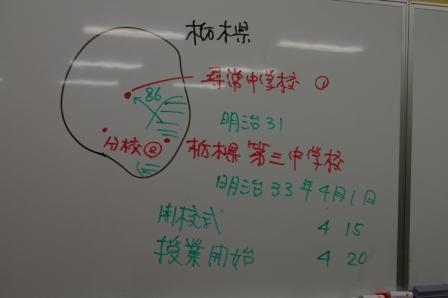 栃木県
尋常中学校 ①
86
明治31
分校 ②
栃木県 第三中学校
明治33年4月1日
開校式 4 15
授業開始 4 20